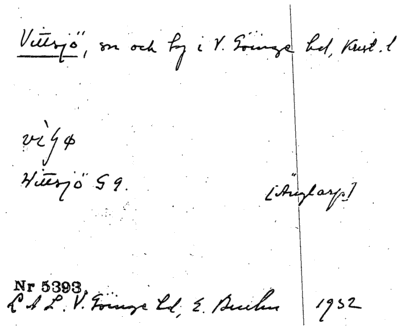 Vittsjö, sn och by i V. Göinge hd, Krist. l
Vittsjö G 9. [Änglarp]
Nr 5393.
L A L. V. Göinge hd, E. 1932